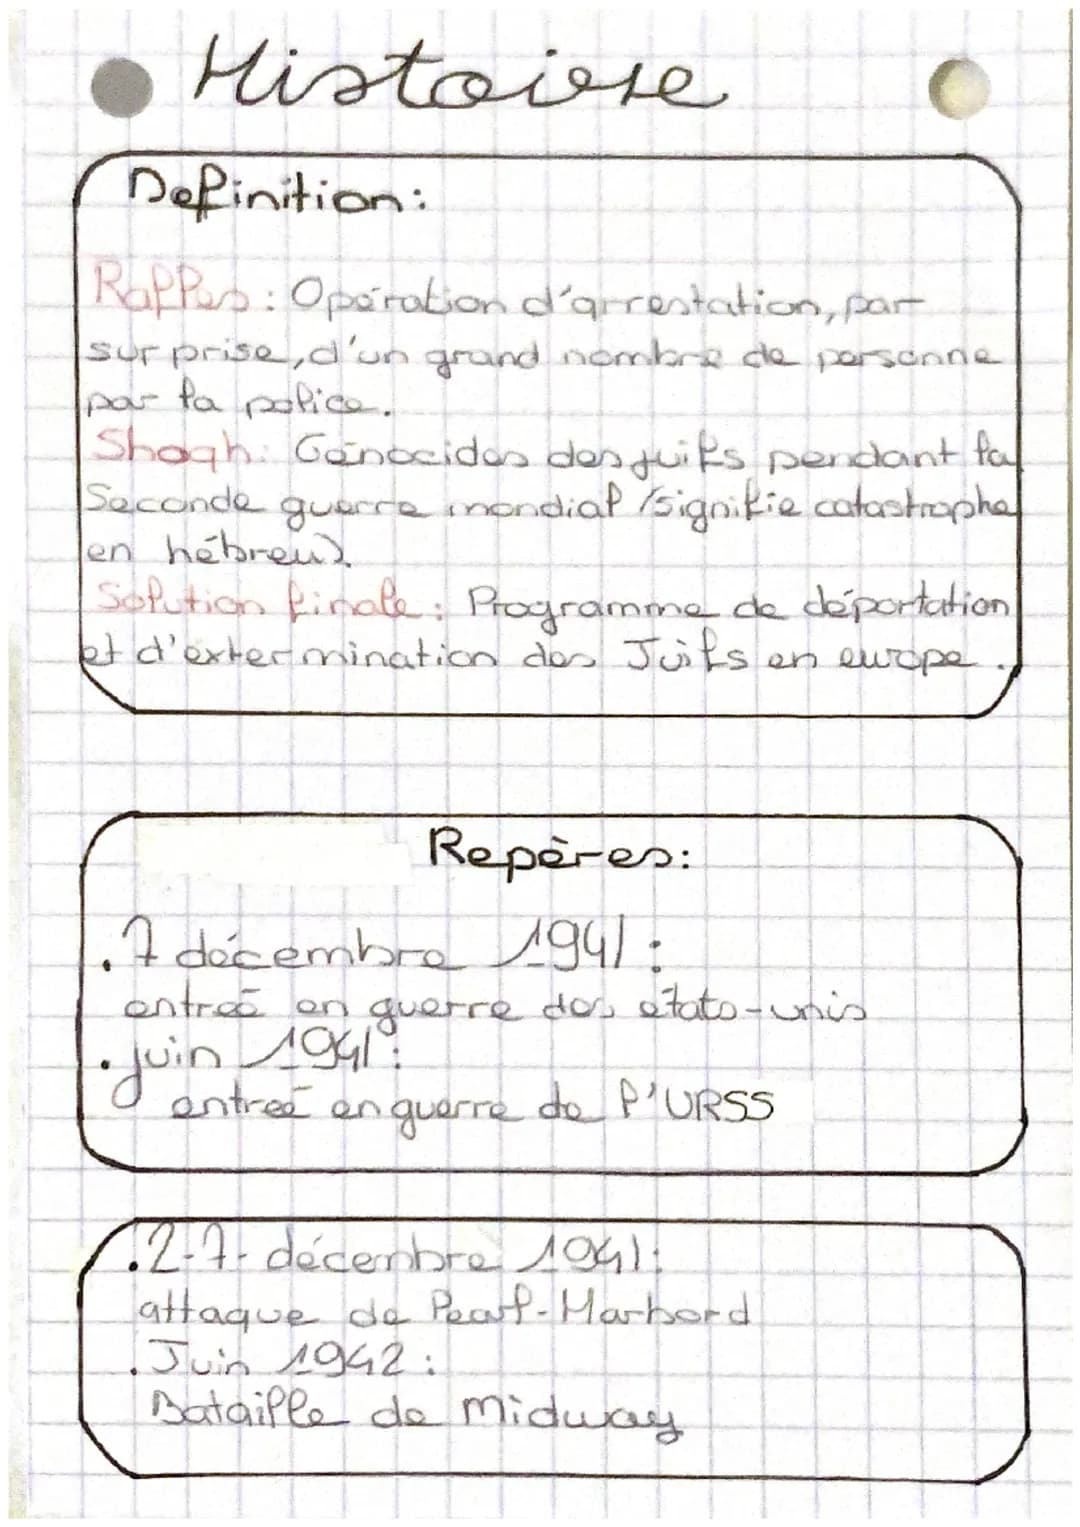 Histoire
Definition:
Raffles: Opération d'arrestation, par
surprise, d'un grand nombre de personne
par la police.
Shoah: Génocides des juifs pendant la
Seconde guerre mondial (signifie catastrophe
en hébreu).
Solution finale: Programme de déportation
et d'extermination des Juifs en europe.
Repères:
.7 décembre 1941:
entreé en guerre des états-unis
.juin 1941:
entreé en guerre de l'URSS
.2-7- décembre 1941:
attaque de Pearl-Harbord
.Juin 1942:
Bataille de midway